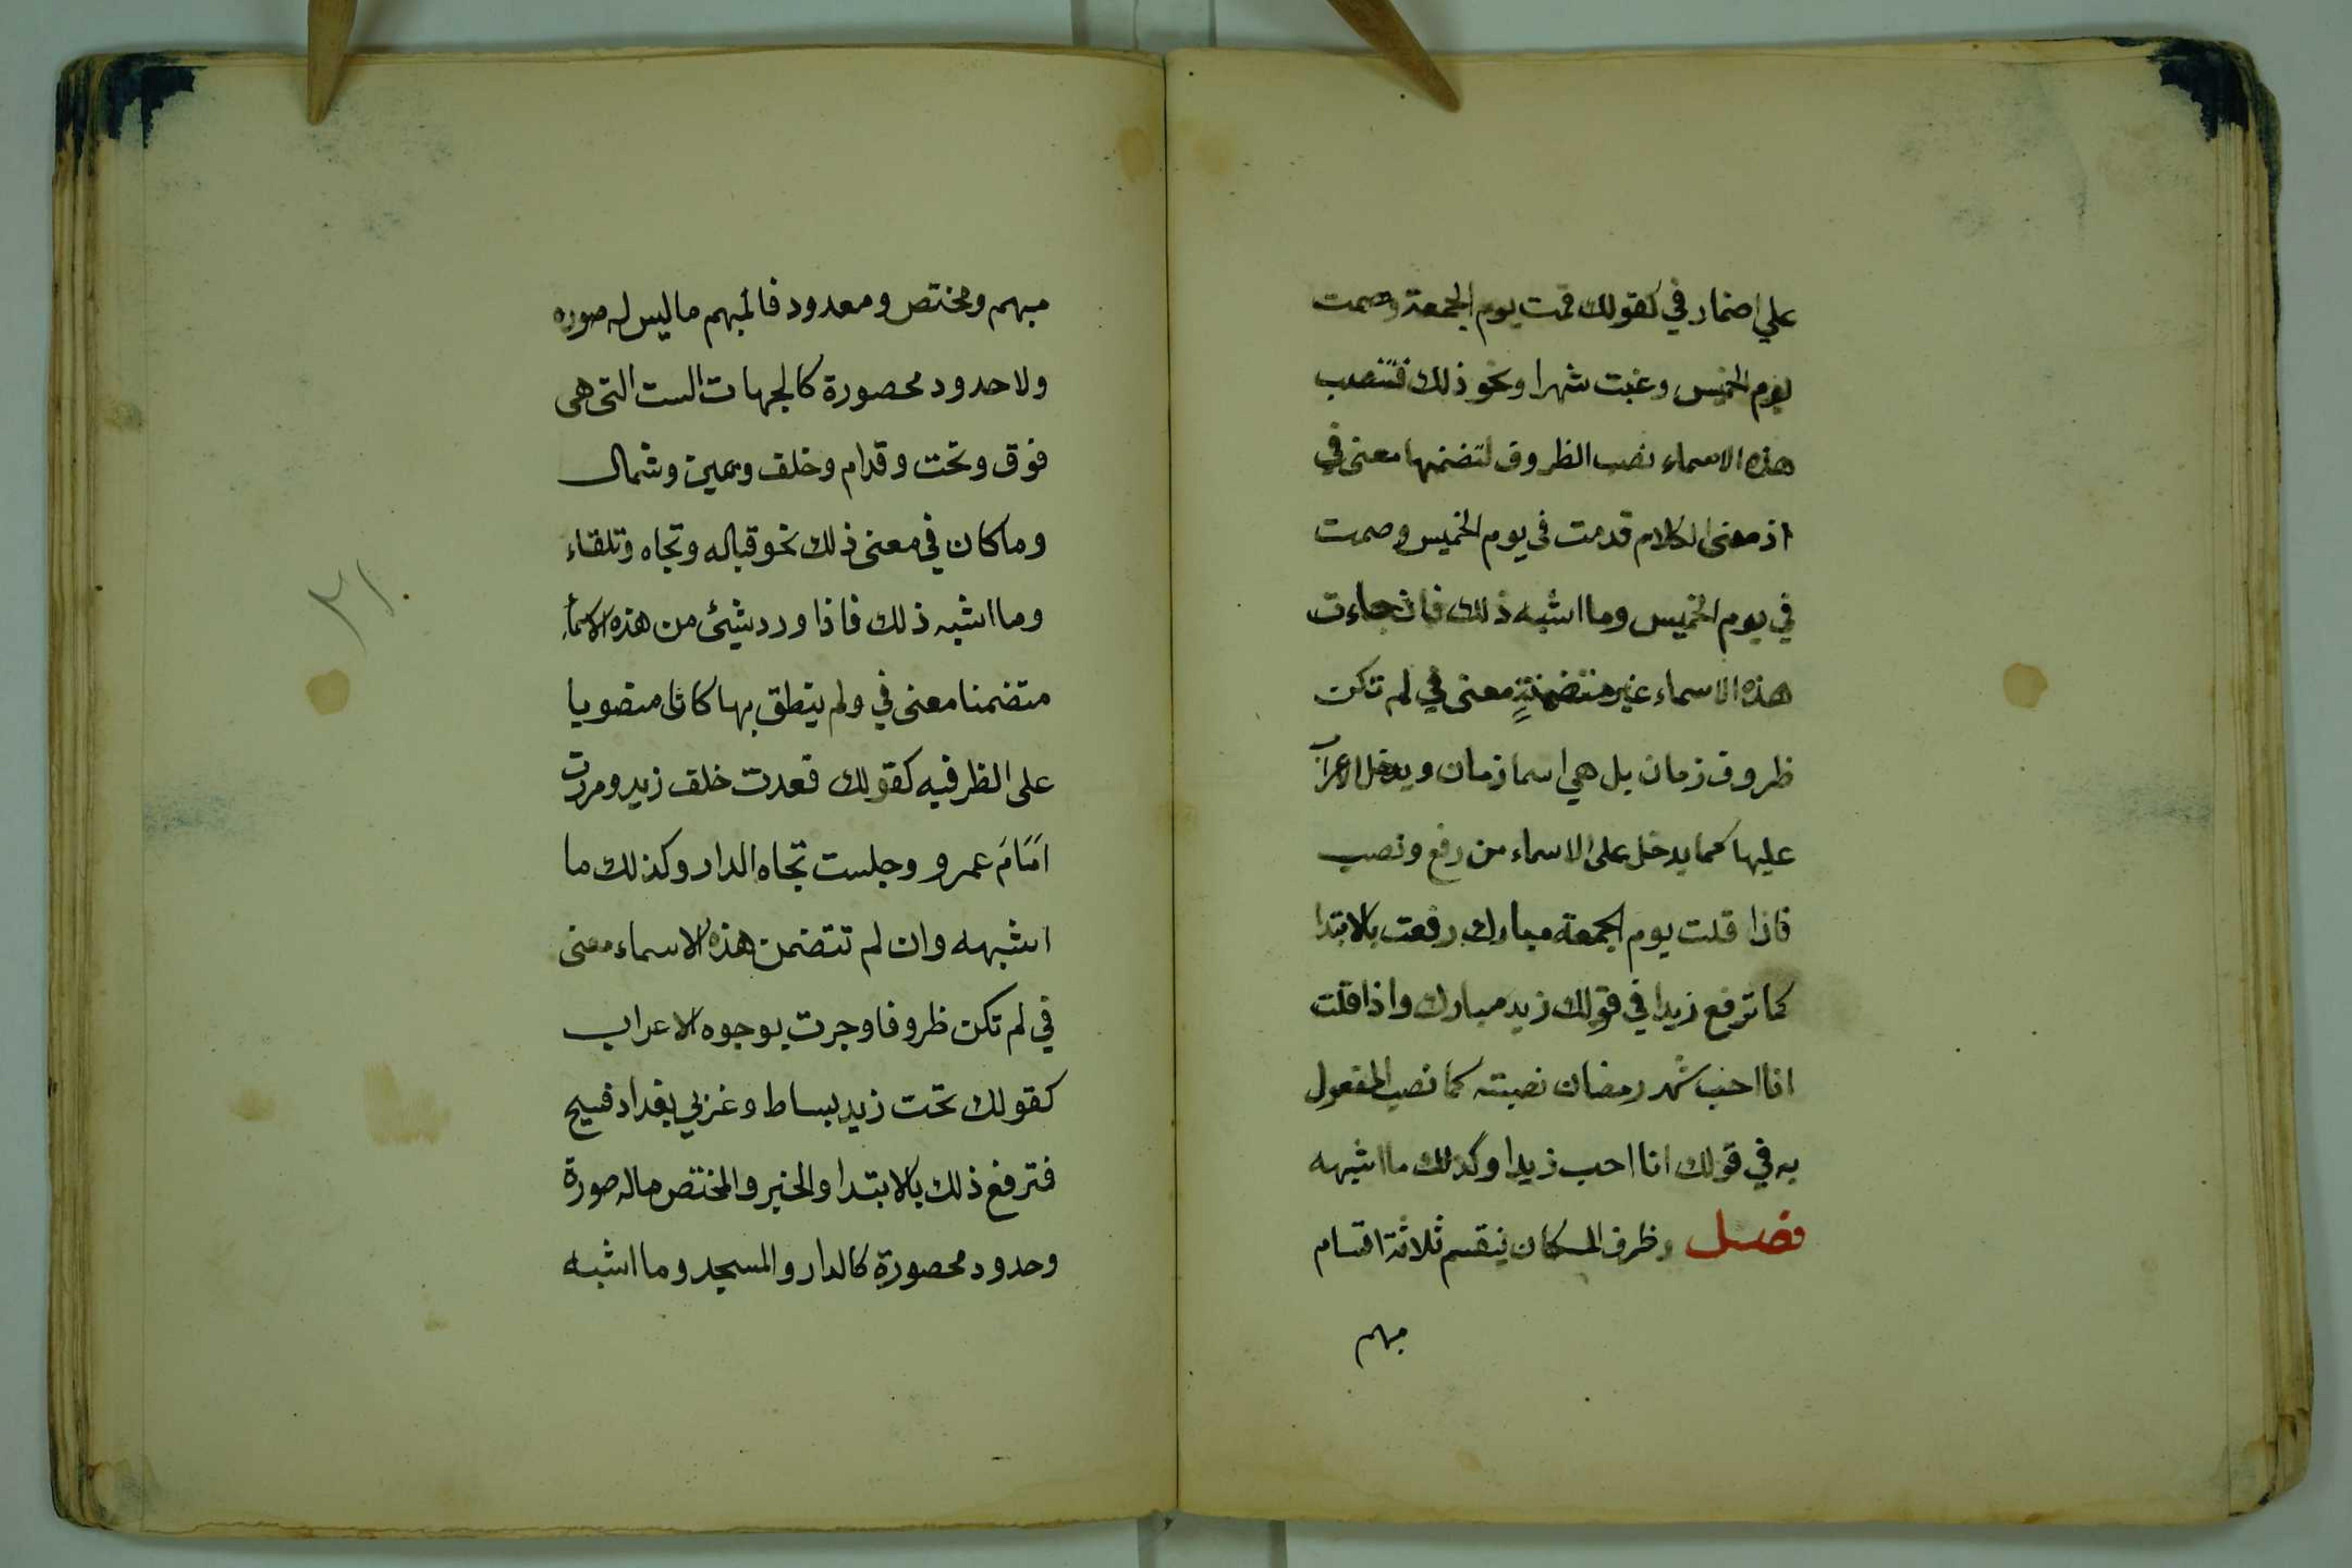 علي اضمار في كقولك قمت يوم الجمعة وصمت
يوم الخميس وغبت شهرا ونحو ذلك فتنصب
هذه الاسماء نصب الظروف لتضمنها معنى في
اذ معنى الكلام قدمت في يوم الخميس وصمت
في يوم الخميس وما اشبه ذلك فان جاءت
هذه الاسماء غير متضمنةٍ معنى في لم تكن
ظروف زمان بل هي اسما زمان ويدخل الاعراب
عليها كما يدخل على الاسماء من رفع ونصب
فاذا قلت يوم الجمعة مبارك رفعت بالابتدا
كما ترفع زيدا في قولك زيد مبارك واذا قلت
انا احب شهر رمضان نصبته كما نصب المفعول
به في قولك انا احب زيدا وكذلك ما اشبهه
فصل وظرف المكان ينقسم ثلاثة اقسام
مبهم
مبهم ومختص ومعدود فالمبهم ما ليس له صوره
ولا حدود محصورة كالجهات الست التى هى
فوق وتحت وقدام وخلف ويمين وشمال
وما كان في معنى ذلك نحو قباله وتجاه وتلقاء
وما اشبه ذلك فاذا ورد شيئ من هذه الاسماء
متضمنا معنى في ولم ينطق بها كان منصوبا
على الظرفيه كقولك قعدت خلف زيد ومررت
امَامَ عمرو وجلست تجاه الدار وكذلك ما
اشبهه وان لم تتضمن هذه الاسماء معنى
في لم تكن ظروفا وجرت بوجوه الاعراب
كقولك تحت زيد بساط وغربي بغداد فسيح
فترفع ذلك بالابتدا والخبر والمختص ماله صورة
وحدود محصورة كالدار والمسجد وما اشبه
٣١